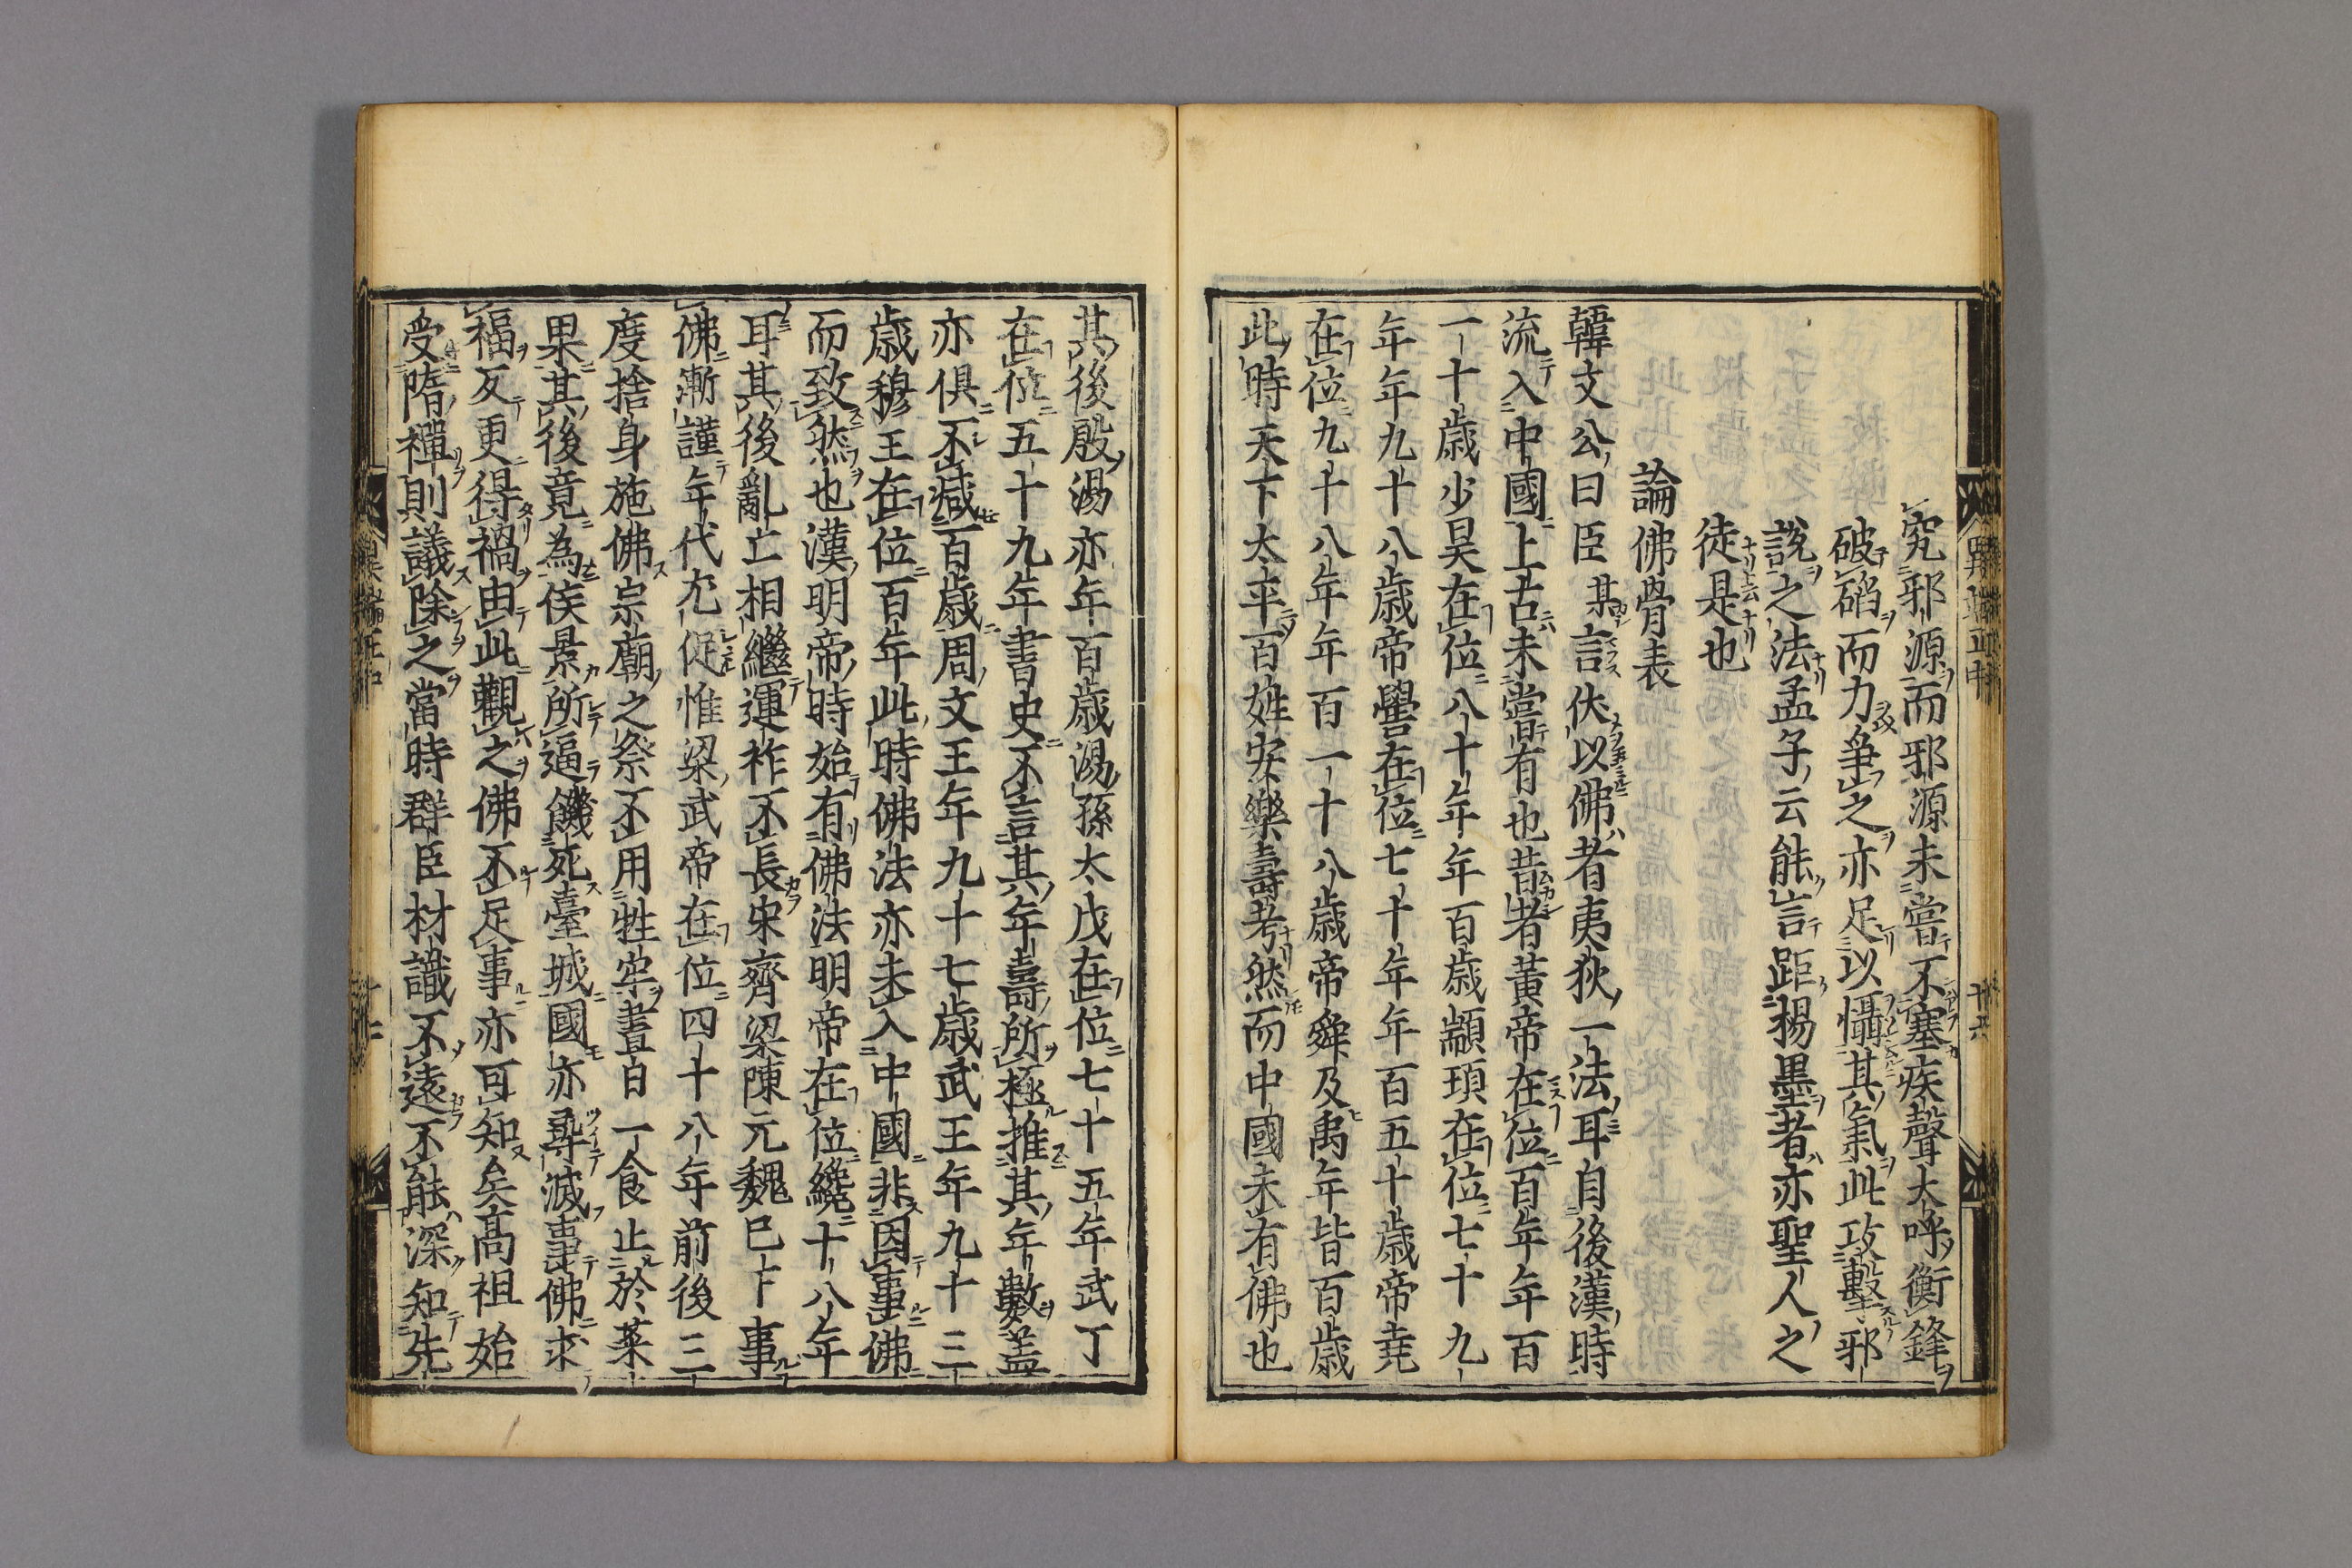 究邪源而邪源未嘗不塞疾聲大呼衝鋒
破𥓂而力爭之亦足以懾其氣此攻擊邪
說之法孟子云能言距楊墨者亦聖人之
徒是也
論佛骨表
韓文公曰臣某言伏以佛者夷狄一法耳自後漢時
流入中國上古未嘗有也昔者黃帝在位百年年百
一十歲少昊在位八十年年百歲顓頊在位七十九
年年九十八歲帝嚳在位七十年年百五十歲帝堯
在位九十八年年百一十八歲帝舜及禹年皆百歲
此時天下太平百姓安樂壽考然而中國未有佛也
其後殷湯亦年百歲湯孫太戊在位七十五年武丁
在位五十九年書史不言其年壽所極推其年數蓋
亦俱不減百歲周文王年九十七歲武王年九十三
歲穆王在位百年此時佛法亦未入中國非因事佛
而致然也漢明帝時始有佛法明帝在位纔十八年
耳其後亂亡相繼運祚不長宋齊梁陳元魏已下事
佛漸謹年代尤促惟梁武帝在位四十八年前後三
度捨身施佛宗廟之祭不用牲牢晝日一食止於菜
果其後竟為侯景所逼饑死臺城國亦尋滅事佛求
福反更得禍由此觀之佛不足事亦可知矣高祖始
受隋禪則議除之當時群臣材識不遠不能深知先